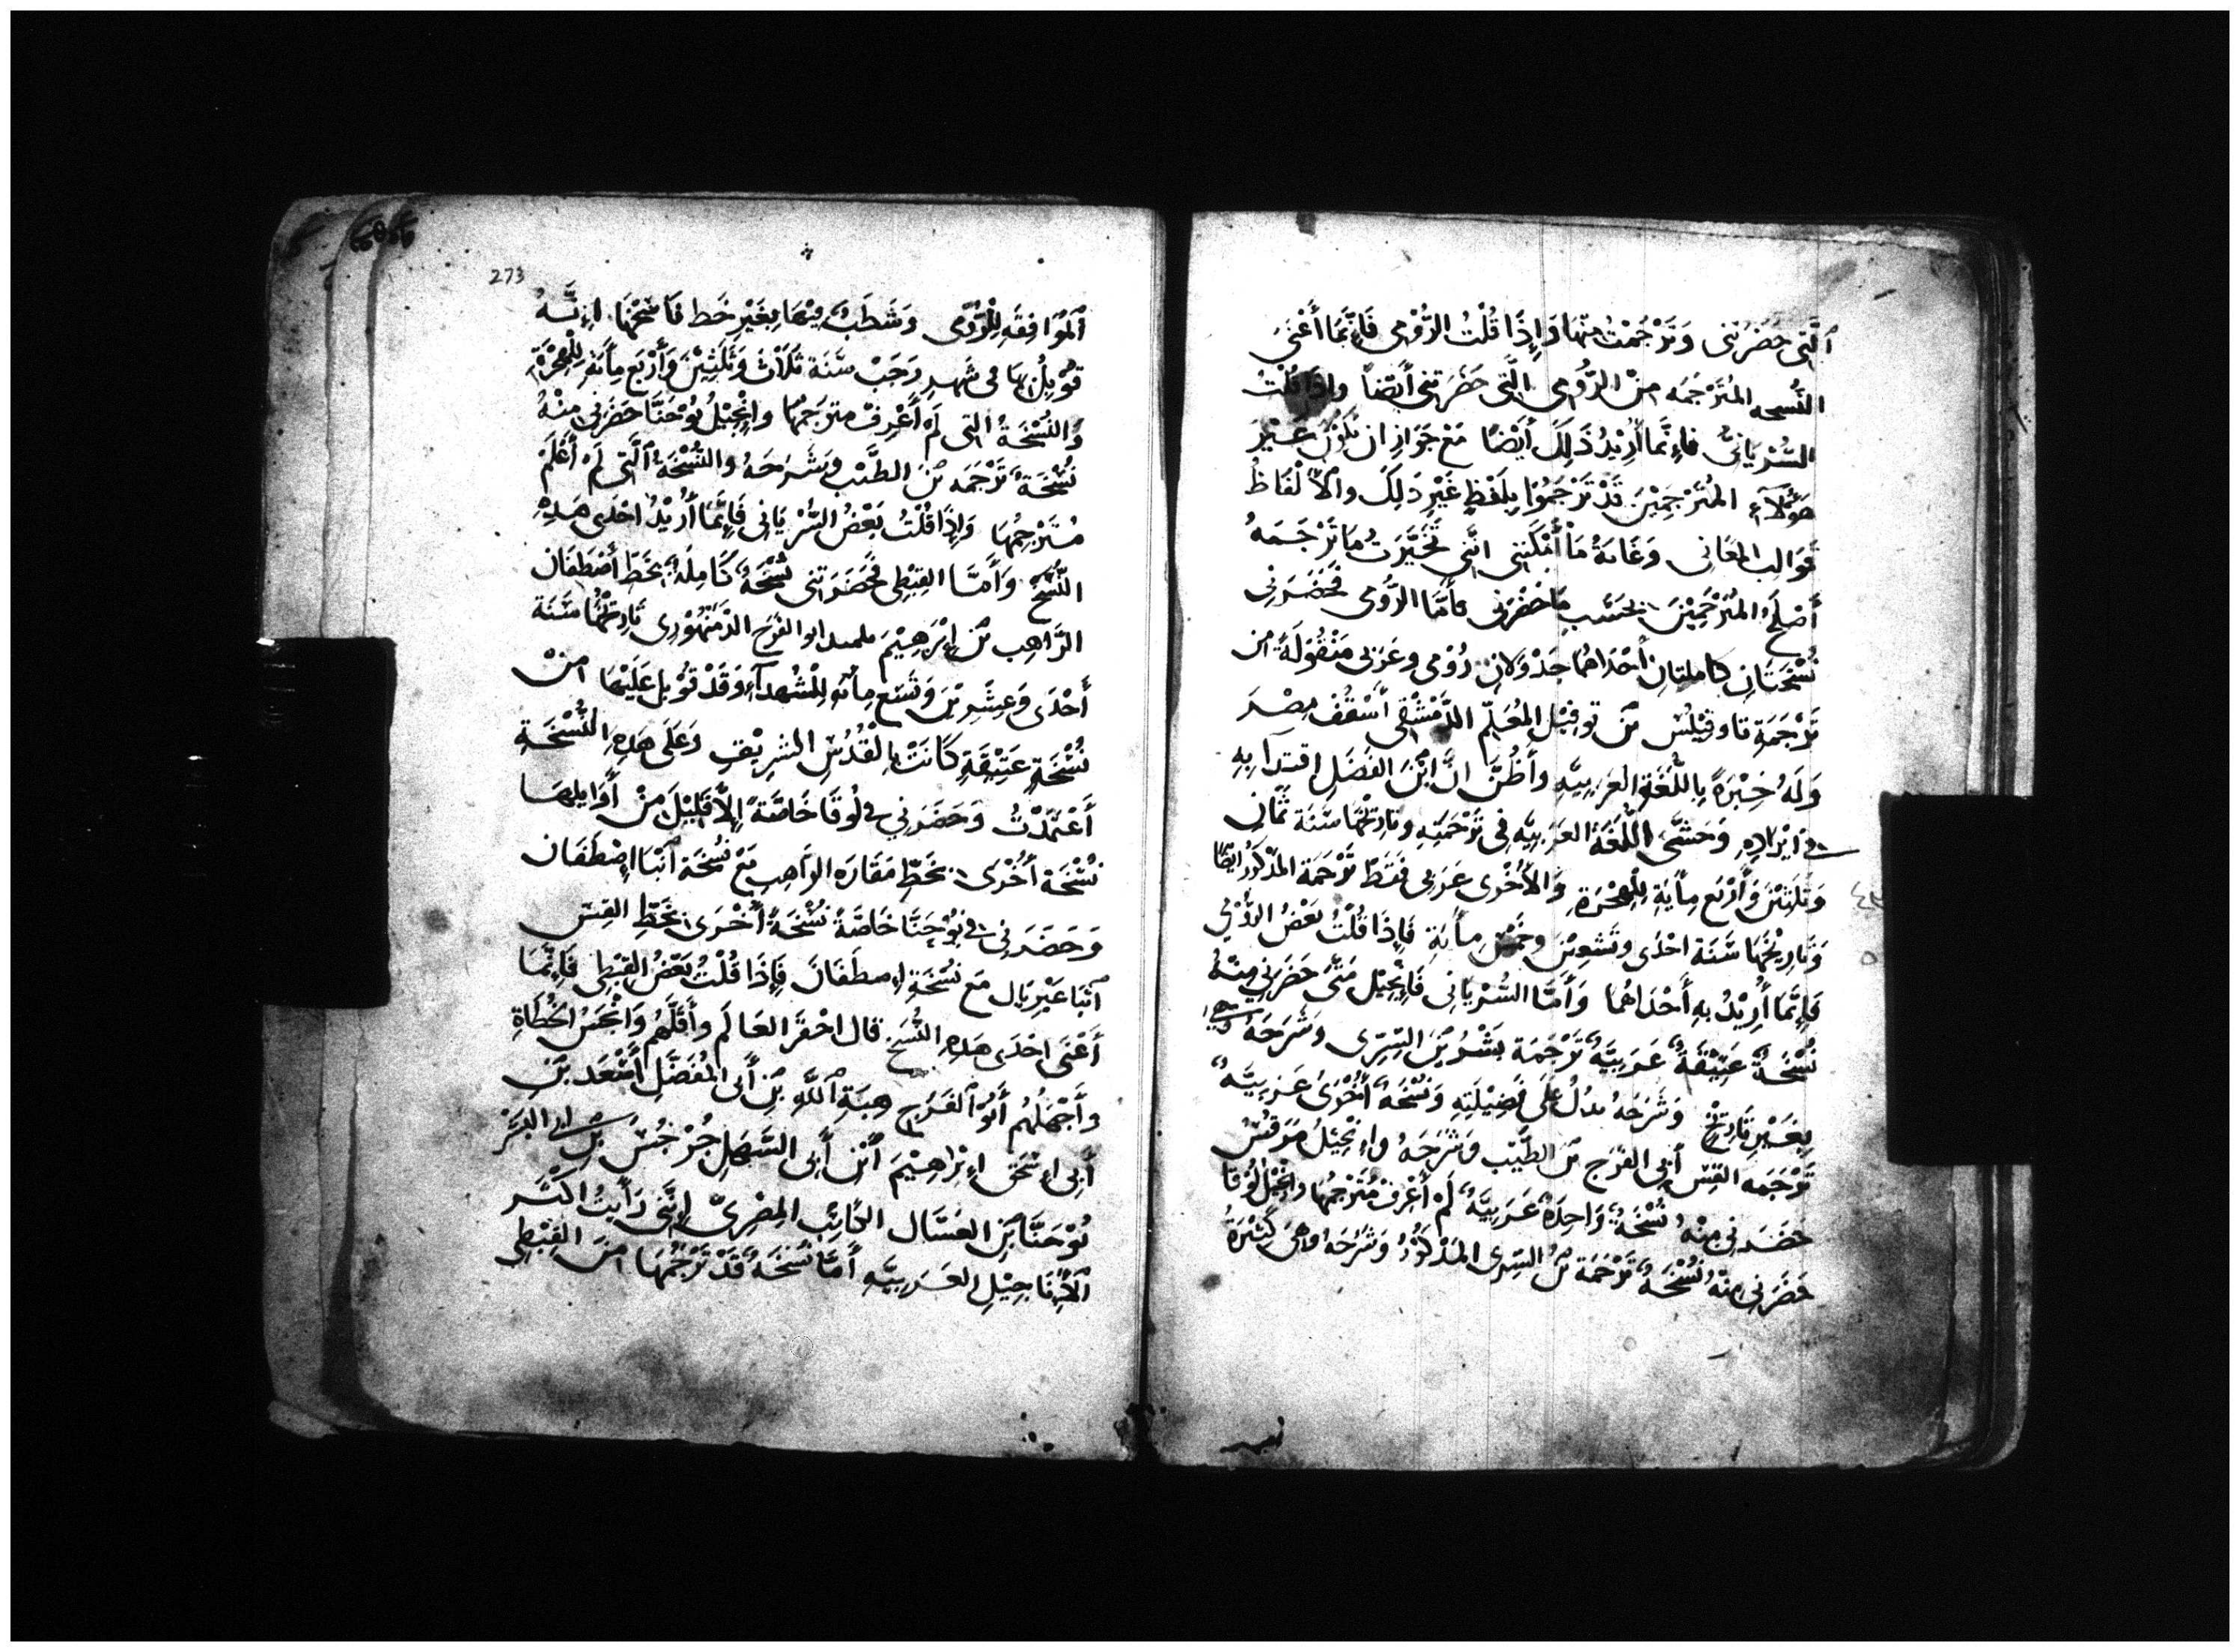 ٱلَّتِى حَضَرَتْنى وَتَرْجَمْتُ مِنْهَا وَاِذَا قُلْتُ الرُّوْمِى فَاِنَّمَا أَعْنَى
النُّسخه المُتَرْجَمَه مِنْ الرُّومِى الَّتِى حَضَرَتْنى أَيْضًا وَاِذَا قُلْتُ
السُّرْيَانِىُّ فَاِنَّمَا أُرِيْدُ ذَلِكَ أَيْضًا مَعْ جَوَازِ ان يَكُوْنَ غَيْرَ
هَؤُلَآءِ المُتَرْجِمِيْنَ قَدْ تَرْجَمُوْا بِلَفْظٍ غَيْرِ ذَلِكَ والأَلْفَاظُ
قَوَالب المَعَانى وَغَايَةُ مَا أَمْكَنَنِى انَّنى تَخَيَّرَتُ مَا تَرْجَمَهُ
أَصْلَحُ المُتَرْجِمِيْنَ بحَسَبِ مَا حَضَرَنى فأَمَّا الرُّومِى فَحَضَرَنِى
نُسْخَتَانِ كَامِلتِانِ أَحْدَاهُمَا جَدْوَلَانِ رُوْمِى وعَرَبِى مَنْقُوْلَةً من
تَرْجَمَةِ تاوفِيْلُسْ بن توفيل المُعَلِّم الدِّمَشْقِى أُسْقُف مِصْرَ
وَلَهُ خِبْرَةً بِاللُّغَةِ العَرَبِيَّهِ وأَظُنُّ انَّ ابْنَ الفَضلِ اقتدآ بِهِ
فى اِيْرَادِهِ وَحَشَّى اللُّغَةُ العَرَبِيَّه فِى تَرْجَمَتِهِ وتَارِيْخُهَا سَنَة ثَمَانٍ
وَثلَثِيْنَ وَأَرْبَع مِأَيَةٍ لِلْهِجْرَةِ وَالأُخْرَى عَرَبِى فَقَطْ تَرْجَمَة المَذْكُوْر ايْضًا
وَتَارِيْخُهَا سَنَة احْدَى وَتِسْعِيْنَ وخَمْسِ مِأيَةِ فَاِذَا قُلْتُ بَعْضُ الرُّوْمِى
فَاِنَّمَا أُرِيْدُ بِهِ أَحْدَاهُمَا وَأَمَّا السُّرْيَانِى فَاِنْجِيْل مَتَّى حَضَرَنِى مِنْهُ
نُسْخَةً عَتِيْقَةً عَرَبِيَّةً تَرْجَمَة بِشْرُ بْنَ السِّرِّى وَشَرَحَهُ
بِغَيْرِ تَارِيْخٍ وَشَرَحَهُ يدُلُّ عَلَى فَضِيْلَتِهِ وَنُسْخَةً أُخْرَى عَرَبِيَّةً
تَرْجَمَه القِسّ أَبِى الفَرَج بن الطَيِّب وَشَرَحَهُ وَاِنْجِيْلُ مَرْقُسْ
حَضَرَنِى مِنْهُ نُسْخَةً وَاحِدَةً عَرَبِيَّةً لَمْ أَعْرِفْ مُتَرْجِمُهَا وانْجِيْلُ لُوقَا
حَضَرَنِى مِنْهُ نُسْخَةً تَرْجَمَة بنُ السِّرى المَذْكُوْرُ وَشَرَحَهُ وَهِىَ كَثِيْرَةُ
273
ٱلمُوَافِقَه لِلْرُّوْمى وَشَطَبْتُ مِنْهَا بِغَيْرِ خَط نَاسِخْهَا اِنَّهُ
قُوْبِلُ بِهَا فِى شَهْرِ رَجَبْ سَنَة ثَلَاثْ وَثَلَثِيْنَ وَأَرْبَع مِأَيَةِ لِلْهِجْرَةِ
وَالنُّسْخَةُ التِى لَمْ أَعْرِفْ مترجِمهَا وانْجِيْلُ يُوْحَنَّا حَضَرَنى مِنْهُ
نُسْخَةً تَرْجَمَه بْنَ الطَّيِّب وشَرَحَهُ والنُّسْخَةُ ٱلَّتى لَمْ أَعْلَمْ
مُتَرْجِمُهَا وَاِذَا قُلْتُ بَعْضُ السُّرْيَانى فَاِنَّمَا أُرِيْدُ احْدَى هَذِهِ
النُّسَخْ وَأَمَّا القِبْطِى فَحَضَرَتنى نُسْخَةً كَامِلَةً بخَطِّ أَصْطَفَان
الرَّاهِب بن اِبْرَهِيْمَ تلميد ابو الفَرَج الدَّمَنْهُوْرى تَارِيْخُهَا سَنَة
أَحْدَى وَعِشْرِيْنَ وَتِسْع مِأيَه لِلْشُهَدآءِ وَقَدْ قُوْبِل عَلَيْهَا مِنْ
نُسْخَةٍ عَتِيْقَةٍ كَانَتْ بِالْقُدْسِ الشريْفِ وَعَلَى هَذِهِ النُّسْخَةِ
أَعْتَمَدْتُ وَحَضَرَنِى فى لُوقَا خَاصَّةً اِلاَّ قَلِيْلَ مِنْ أَوَايلِهَا
نُسْخَة أُخْرَى بخَطّ مَقَارَه الرَاهِب مَعْ نُسْخَة أَنْبَا اِصْطَفَان
وَحَضَرَنِى فى يُوْحَنَّا خَاصَّةً نُسْخَةً أُخْرَى بخَطِّ القِسّ
أَنْبَا غَبْرِيَال مَعَ نُسْخَةِ اِصطَفَانَ فَاِذَا قُلْتُ بَعْضُ القِبْطِى فَاِنَّمَا
أَعْنَى احْدَى هَذِهِ النُّسَخْ قَال احْقَرَ العَالَم وأَقَلَّهُمْ وَانْجَسُ الخُطَاةِ
وأَجْهَلُهُمْ أَبُوْ ٱلفَرَجِ هِبَةِ ٱللَّهِ بْن أَبى المُفَضَّلِ أَسْعَدَ بْنِ
أَبِى اِسْحَقَ اِبْرَاهِيْمَ ٱبْن أَبِى السَّهْلِ جُرْجُسْ بْن ابى اليُسْر
يُوْحَنَّا بْن العَسَّال الكَاتِب المِصْرِىّ اِنَّنِى رَأَيتُ اكْثَر
ٱلأَنَاجِيْلِ العَرَبِيَّهِ أَمَّا نُسْخَةً قَدْ تَرْجَمَهَا مِنَ القِبْطِى